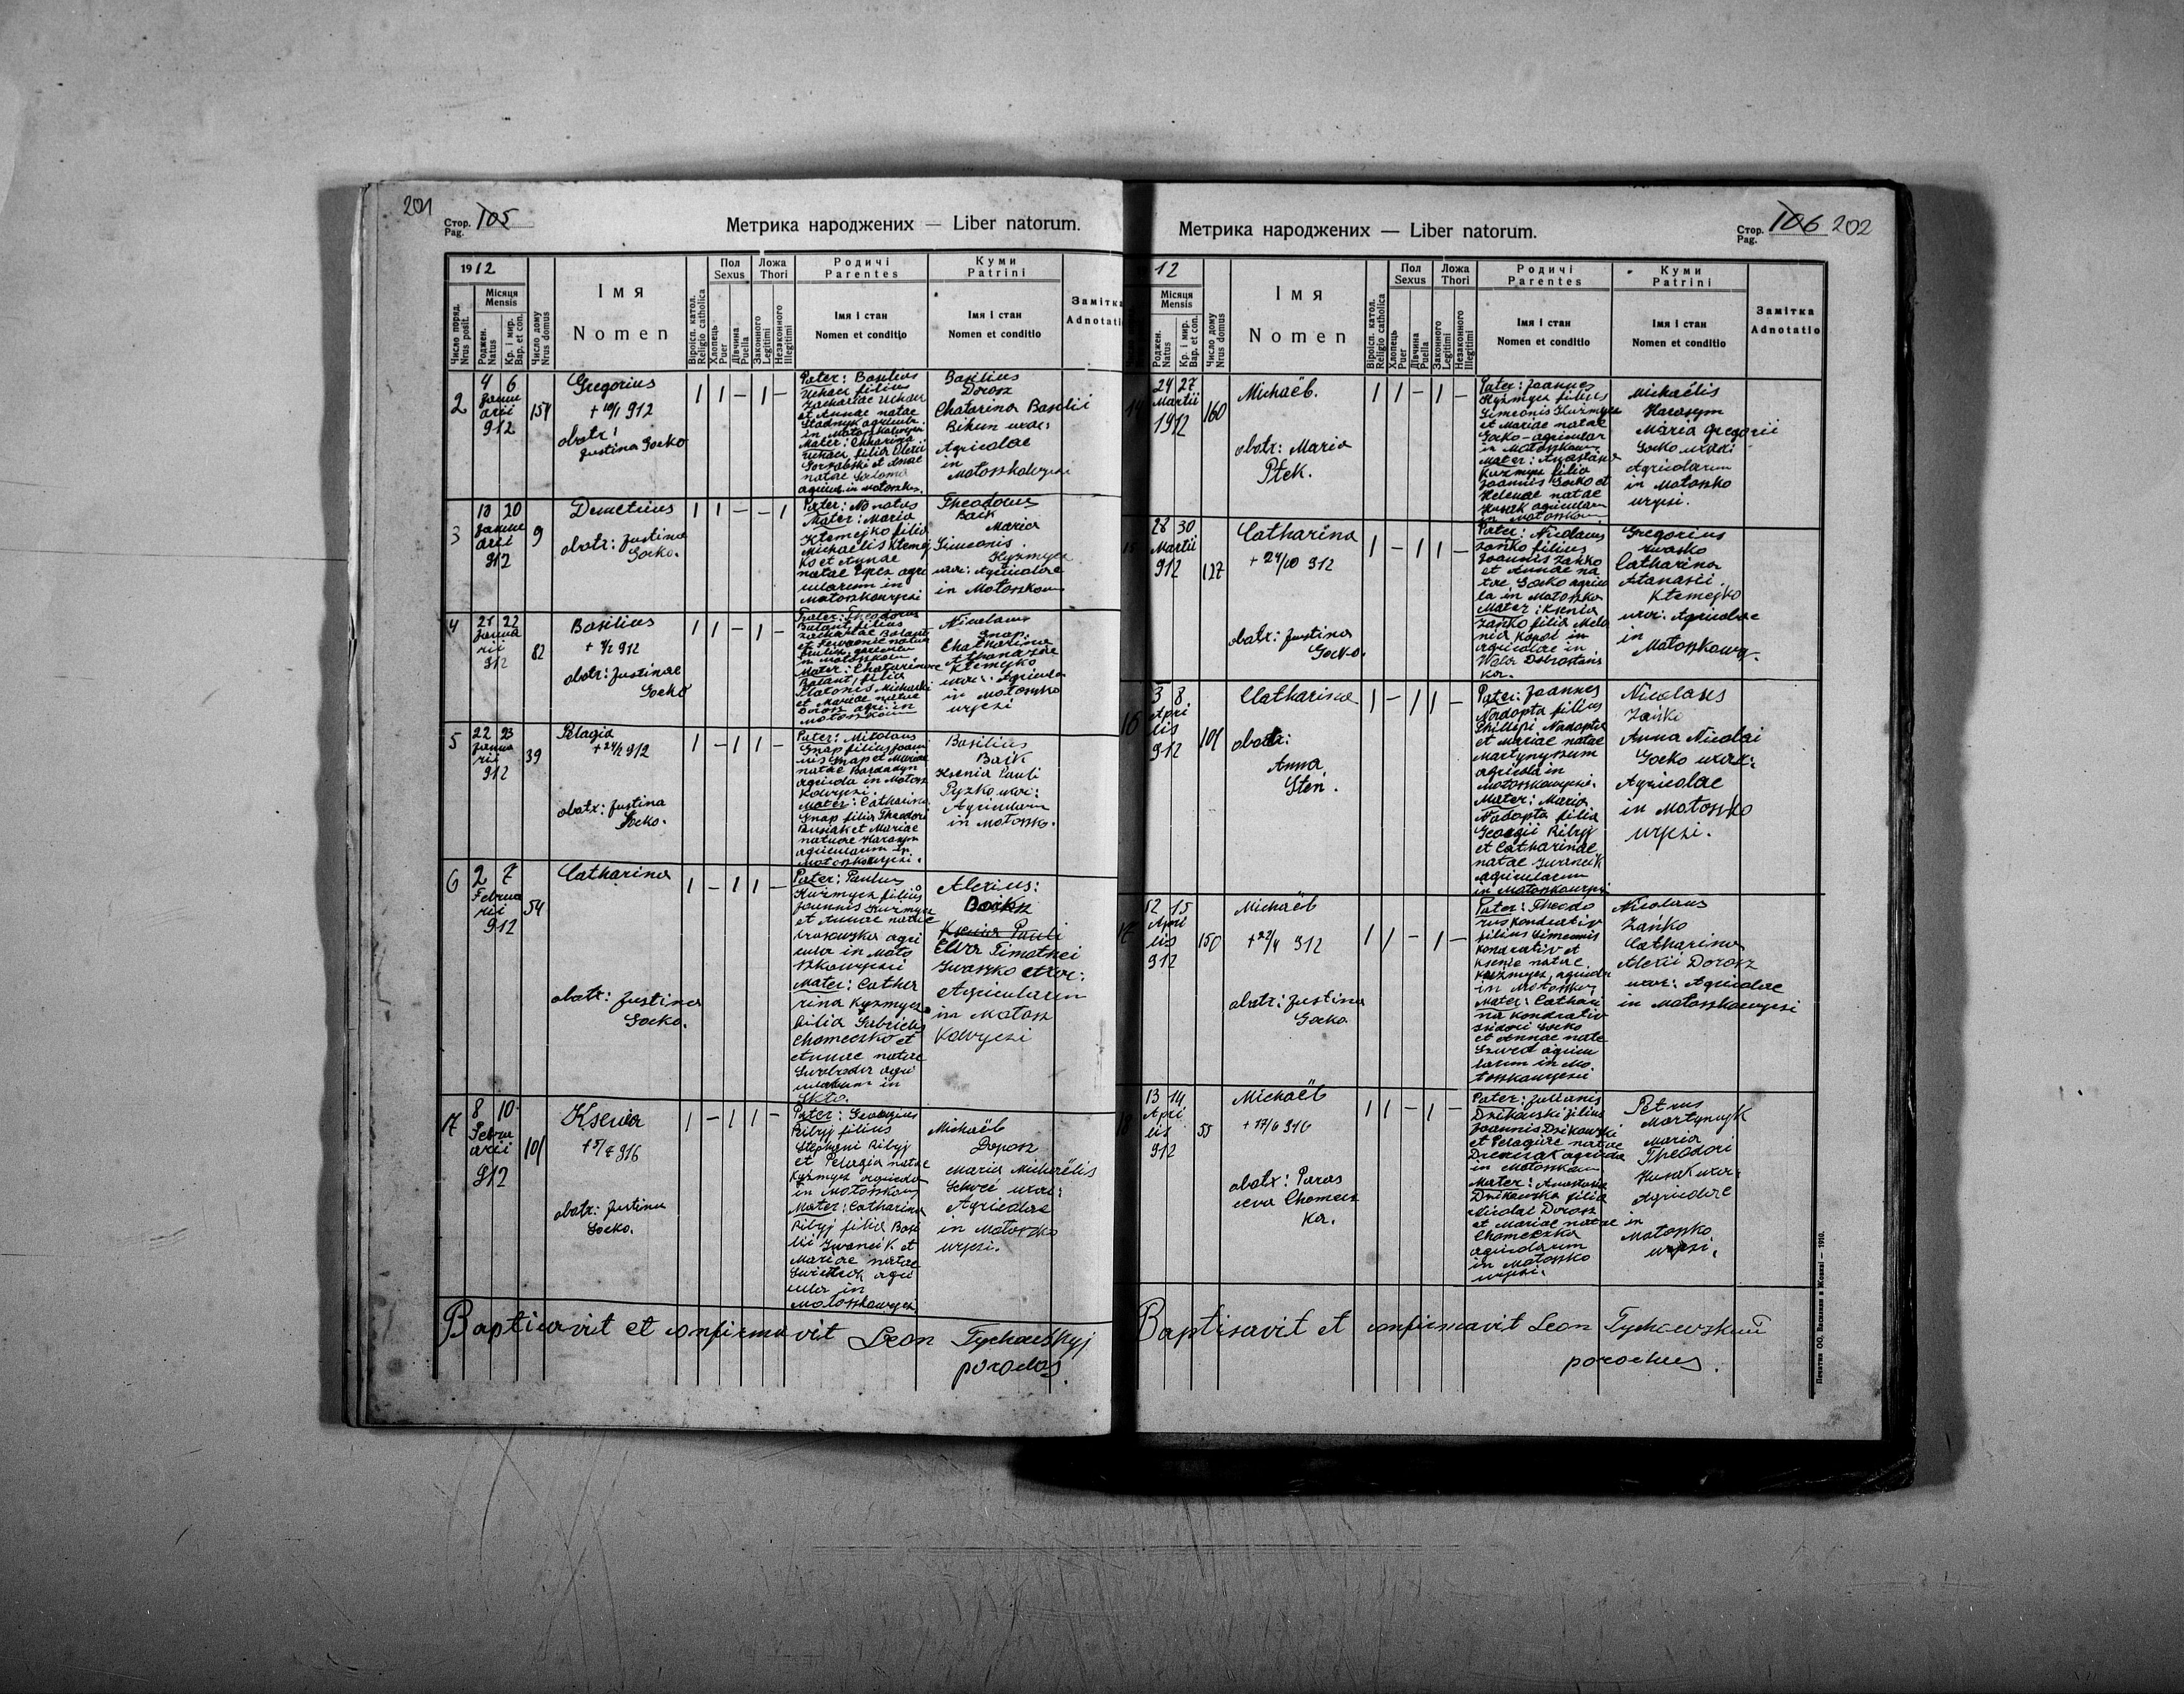 201
Стор. Pag. 105
Метрика народжених — Liber natorum.
1912
Число поряд. Nrus posit.
Місяця Mensis
Роджен. Natus
Кр. і мир. Bap. et con.
Число дому Nrus domus
Імя
Nomen
Віроісп. катол. Religio catholica
Пол Sexus
Хлопець Puer
Дївчина Puella
Ложа Thori
Законного Legitimi
Незаконного Illegitimi
Родичі Parentes
Імя і стан
Nomen et conditio
Куми Patrini
Імя і стан
Nomen et conditio
Замітка
Adnotatio
2
4 6
Janu
arii
912
154
Gregorius
+ 10/1 912
obstr:
Justina Gocko
1 1 – 1 –
Pater: Basilius
filius
Zachariae
et Annae natae
in
Mater: Chtarina
filia Alexii
et Annae
natae
agricul. in Matoszko.
Basilius
Dorosz
Chatarina Basilii
Bihun uxor:
Agricolae
in
Matoszkowyczi
3
18 20
Janu
arii
912
9
Demetrius
obstr: Justina
Gocko.
1 1 – – 1
Pater: No natus
Mater: Maria
Klemejko filia
Michaelis Klemej
ko et Annae
natae agri
cularum in
Matoszkowyczi
Theodorus
Baik
Maria
Simeonis
Kyzmycz
uxor: Agricolae
in Matoszkow
4
21 22
Janua
rii
912
82
Basilius
+ 4/2 912
obstr: Justinae
Gocko
1 1 – 1 –
Pater: Theodorus
Balant filius
Zachariae Balant
et natae
in Matoszkow
Mater: Chatarinae
Balant, filia
Platonis
et Mariae natae
Dorosz agri: in
Matoszkow
Nicolaus
Gnap
Chatharina
Athanaziae
Klemejko
uxor: Agricolae
in Matoszko
wyczi
5
22 23
Janua
rii
912
39
Pelagia
+ 24/2 912
obstr: Justina
Gocko.
1 – 1 1 –
Pater: Nikolaus
Gnap filius Joan
nis Gnap et Mariae
natae
agricola in Matosz
kowyczi.
Mater: Catharina
Gnap filia Theodori
Busiak et Mariae
natae Harasym
agricularum in
Matoszkowyczi.
Basilius
Baik
Ksenia Pauli
Pyzko uxor:
Agricularum
in Matoszko.
6
2 7
Februa
rii
912
54
Catharina
obstr: Justina
Gocko.
1 – 1 1 –
Pater: Paulus
Kuzmycz filius
Joannis Kuzmycz
et Annae natae
agri
cula in Mato
szkowyczi
Mater: Catha
rina Kyzmycz
filia Gabrielis
Chomeczko et
Annae natae
agri
cularum in
Alexius:
Ksenia Pauli
Ewa Timothei
Iwaszko uxor:
Agricularum
in Matosz
kowyczi
7
8 10
Febru
arii
912
101
Ksenia
+ 916
obstr: Justina
Gocko.
1 – 1 1 –
Pater: Georgius
Bilyj filius
Stephani Bilyj
et Pelagia natae
Kyzmycz agricola
in Matoszkow
Mater: Catharina
Bilyj filia Basi
lii Iwancik et
Mariae natae
agri
cula in
Matoszkowyczi
Michaël
Dorosz
Maria Michaëlis
uxor:
Agricolae
in Matoszko
wyczi.
Baptisavit et confirmavit Leon Tychowskyj
parochus.
Метрика народжених — Liber natorum.
Стор. Pag. 106 202
12
Місяця Mensis
Роджен. Natus
Кр. і мир. Bap. et con.
Число дому Nrus domus
Імя
Nomen
Віроісп. катол. Religio catholica
Пол Sexus
Хлопець Puer
Дївчина Puella
Ложа Thori
Законного Legitimi
Незаконного Illegitimi
Родичі Parentes
Імя і стан
Nomen et conditio
Куми Patrini
Імя і стан
Nomen et conditio
Замітка
Adnotatio
14
24 27
Martii
1912
160
Michaël.
obstr: Maria
Ptek.
1 1 – 1 –
Pater: Joannes
Kyzmycz filius
Simeonis Kuzmycz
et Mariae natae
Gocko – agricular
in Matoszkow.
Mater: Anastasia
Kuzmycz filia
Joannis Gocko et
Helenae natae
Husak agricularum
in Matoszkow.
Michaëlis
Harasym
Maria Gregorii
Gocko uxori
Agricolarum
in Matoszko
wyczi.
15
28 30
Martii
912
127
Catharina
+ 24/10 912
obstr: Justina
Gocko.
1 – 1 1 –
Pater: Nicolaus
Zańko filius
Joannis Zańko
et Annae na
tae Gocko agrico
la in Matoszko
Mater: Ksenia
Zańko filia
in
agricolae in
Wola Dobrostańs
ka.
Gregorius
Iwasko
Catharina
Atanasii
Klemejko
uxor: Agricolae
in
Matoszkowy.
16
3 8
Apri
lis
912
101
Catharina
obstr:
Anna
Sten.
1 – 1 1 –
Pater: Joannes
Nadopta filius
Philippi Nadopta
et Mariae natae
Martynyszum
agricola in
Matoszkowyczi.
Mater: Maria
Nadopta filia
Georgii Bilyj
et Catharinae
natae Iwancik
agricularum
in Matoszkowyczi
Nicolaus
Zańko
Anna Nicolai
Gocko uxor:
Agricolae
in Matoszko
wyczi.
17
12 15
Apri
lis
912
150
Michaël
+ 22/4 912
obstr: Justina
Gocko.
1 1 – 1 –
Pater: Theodo
rus Kondrativ
filius Simeonis
Kondrativ et
Ksenia natae
Kuzmycz, agricola
in Matoszkow
Mater: Cathari
na Kondrativ
Isidori Gocko
et Annae natae
Szwed agricu
larum in Ma
toszkowyczi
Nicolaus
Zańko
Catharina
Alexii Dorosz
uxor: Agricolae
in Matoszkowyczi
18
13 14
Apri
lis
912
55
Michaël
+ 17/6 916
obstr: Paras
ceva Chomecz
ka.
1 1 – 1 –
Pater: Julianis
Dzikowski filius
Joannis Dzikowski
et Pelagiae natae
agricola
in Matoszkow
Mater: Anastasia
Dzikowska filia
Nicolai Dorosz
et Mariae natae
Chomeczka
agricolarum
in Matoszko
wyczi.
Petrus
Martynyszyk
Maria
Theodori
Husak uxor:
Agricolae
in
Matoszko
wyczi.
Baptisavit et confirmavit Leon Tychowskyj
parochus.
Печатня ОО. Василіян в Жовкві — 1910.